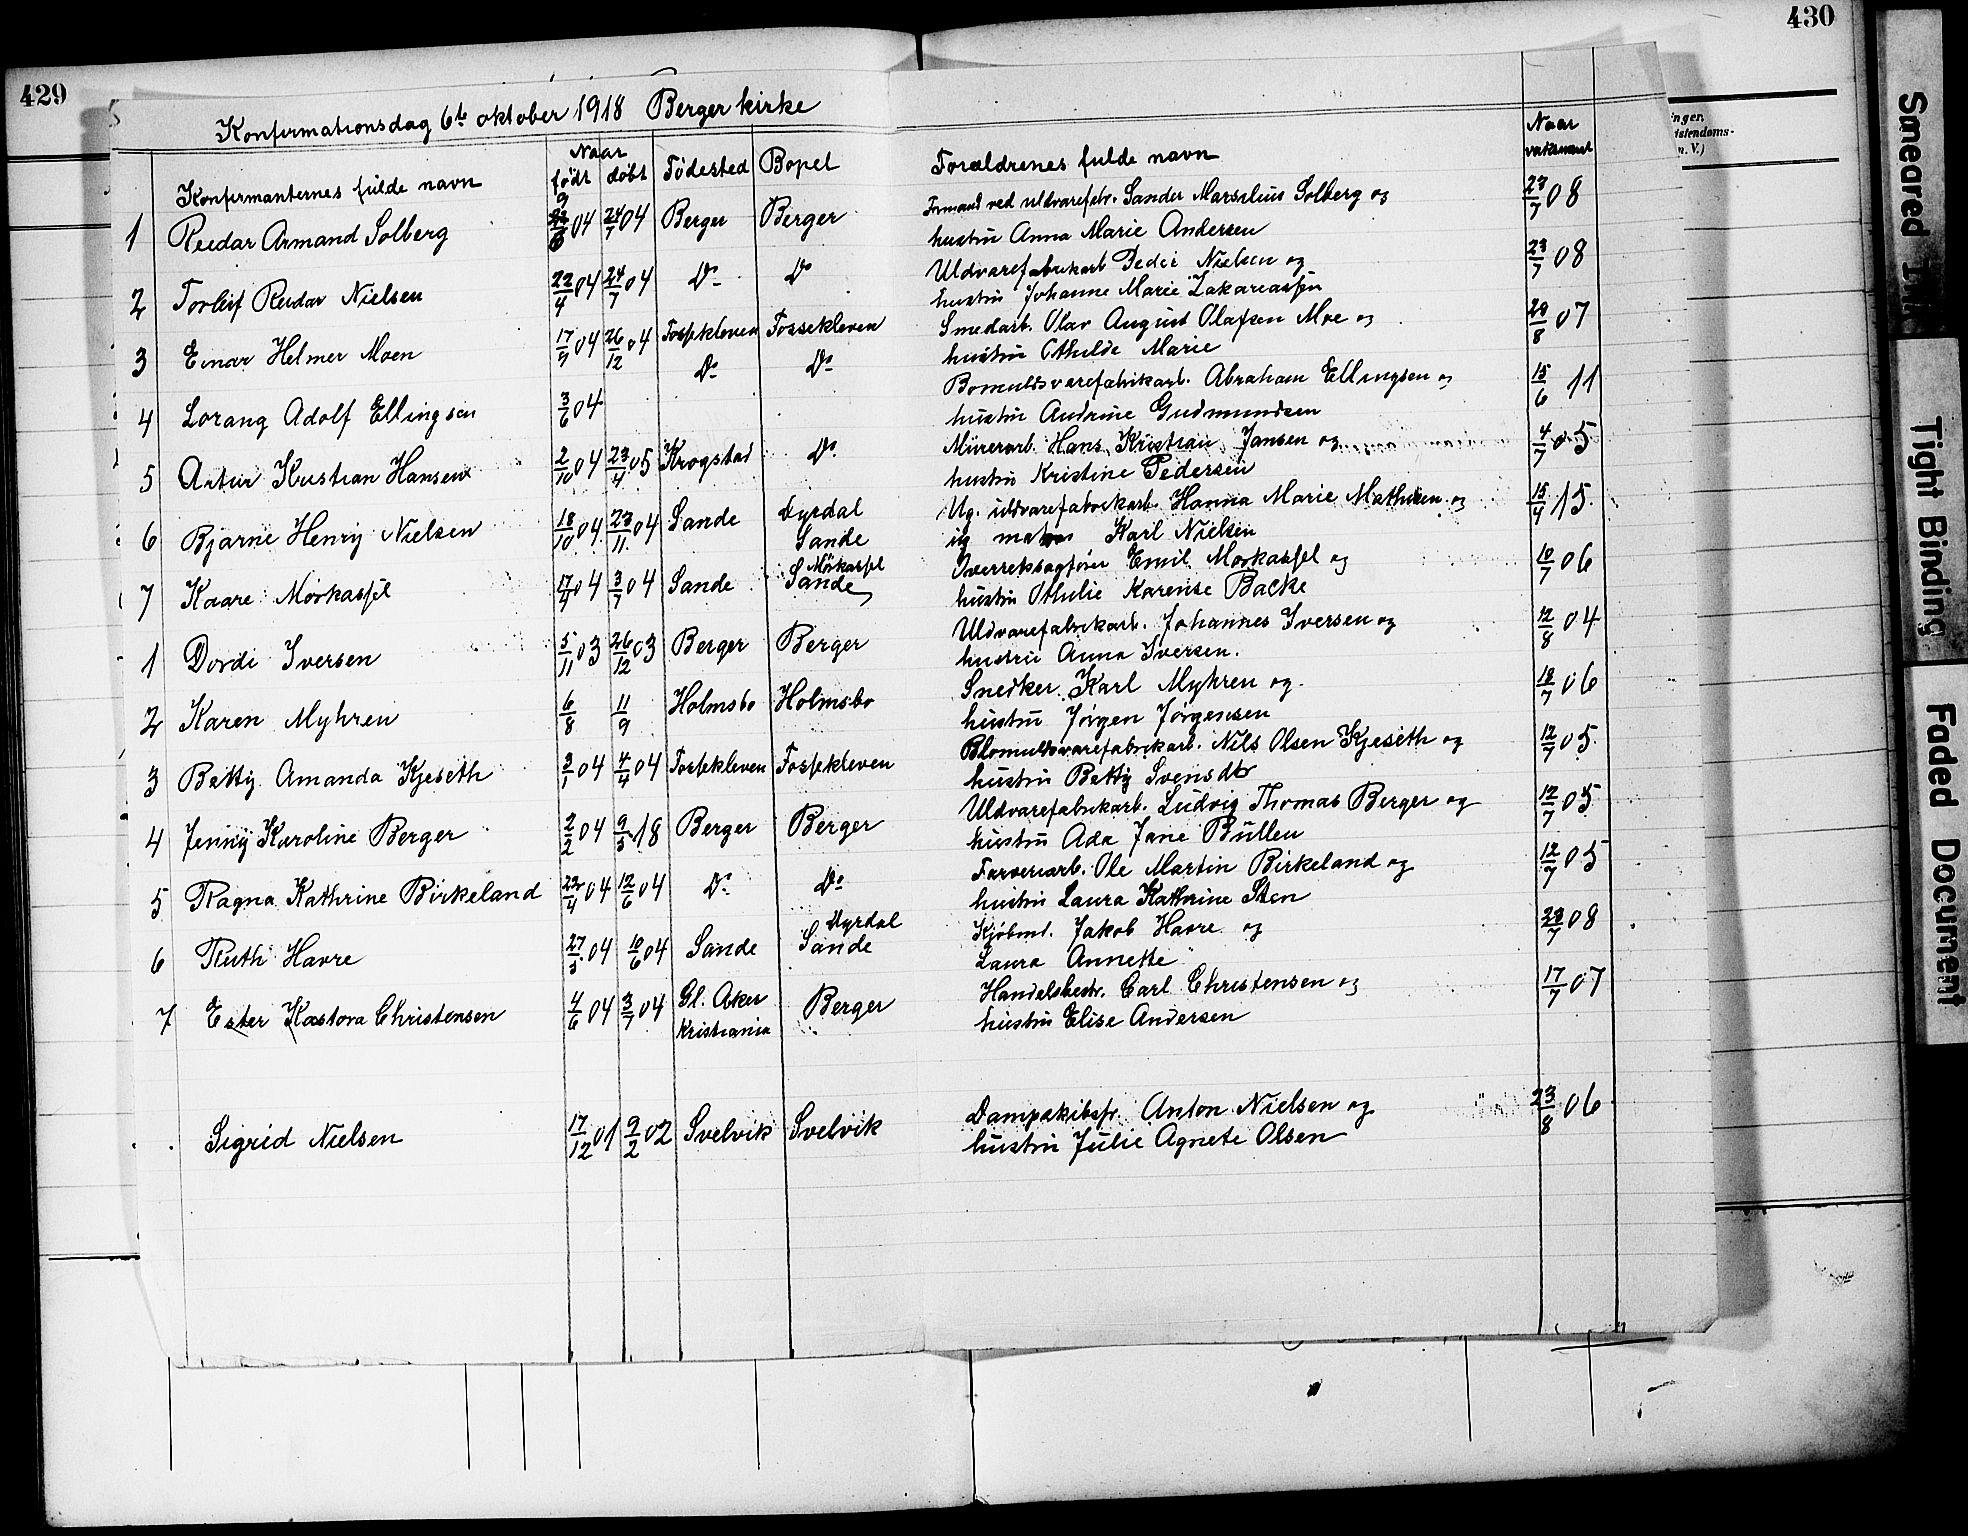 429
430
Konfirmationsdag 6te oktober 1918 Berger kirke
Konfirmanternes fulde navn
Naar
født døbt
Fødested Bopel
Forældrenes fulde navn
Naar
nger.
istendoms-
n. V.)
1 Reidar Armand Solberg 04 24/7 04 Berger Berger
Formand ved uldvarefabr. Sander Marselius Solberg og 23/7 08
hustru Anna Marie Andersen
2 Torleif Reidar Nielsen 22/4 04 24/7 04 Do Do
Uldvarefabrikarb Peder Nielsen og 23/7 08
hustru Johanne Marie Zakariassen
3 Einar Helmer Moen 17/9 04 26/12 04 Fossekleven Fossekleven
Smedarb. Olav August Olafsen Moe og 20/8 07
hustru Othilde Marie
4 Lorang Adolf Ellingsen 3/6 04 Do Do
Bomuldsvarefabrikarb. Abraham Ellingsen og 15/6 11
hustru Andrine Gudmundsen
5 Artur Kristian Hansen 2/10 04 23/4 05 Krogstad Do
Murerarb. Hans Kristian Jansen og 4/7 05
hustru Kristine Pedersen
6 Bjarne Henry Nielsen 18/10 04 23/11 04 Sande Dyrdal
Sande
Ug. uldvarefabrikarb. Hanna Marie Mathisen og 15/4 15
ug matros Karl Nielsen
7 Kaare Mørkassel 17/4 04 3/7 04 Sande Mørkassel
Sande
Overretssagfører Emil Mørkassel og 10/7 06
hustru Othilie Karense Backe
1 Dordi Iversen 5/11 03 26/12 03 Berger Berger
Uldvarefabrikarb. Johannes Iversen og 12/8 04
hustru Anna Iversen.
2 Karen Myhren 6/8 11/9 Holmsbo Holmsbo
Snedker Karl Myhren og 18/7 06
hustru Jørgen Jørgensen
3 Betty Amanda Kjeseth 3/1 04 4/4 04 Fossekleven Fossekleven
Blomuldsvarefabrikarb. Nils Olsen Kjeseth og 12/7 05
hustru Betty Svensdtr
4 Jenny Karoline Berger 2/2 04 9/5 18 Berger Berger
Uldvarefabrikarb. Ludvig Thomas Berger og 12/7 05
hustru Ada Jane Bullen
5 Ragna Kathrine Birkeland 22/4 04 12/6 04 Do Do
Farveriarb. Ole Martin Birkeland og 12/7 05
hustru Laura Kathrine Sten
6 Ruth Havre 27/3 04 10/6 04 Sande Dyrdal
Sande
Kjøbmd. Jakob Havre og 23/7 08
Laura Annette
7 Ester Kastora Christensen 4/6 04 3/7 04 Gl. Aker Berger
Kristiania
Handelsbestr. Carl Christensen og 17/7 07
hustru Elise Andersen
Sigrid Nielsen 17/12 01 9/2 02 Svelvik Svelvik
Dampskibsfr. Anton Nielsen og 23/8 06
hustru Julie Agnete Olsen
Smeared Ink
Tight Binding
Faded Document